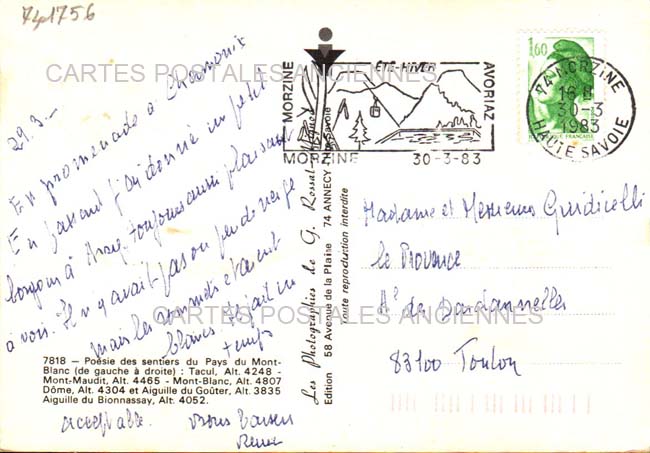 741756
CARTES POSTALES ANCIENNES
29.3.-
En promenade à Chamonix
En passant j'ai donné un petit
bonjour à Annecy toujours aussi plaisant
à voir. Il n'y avait pas ou peu de neige
mais les sommets étaient
blancs. Il fait un
temps
acceptable. Bons baisers
CARTES POSTALES ANCIENNES
7818 — Poésie des sentiers du Pays du Mont-
Blanc (de gauche à droite) : Tacul, Alt. 4248 -
Mont-Maudit, Alt. 4465 - Mont-Blanc, Alt. 4807
Dôme, Alt. 4304 et Aiguille du Goûter, Alt. 3835
Aiguille du Bionnassay, Alt. 4052.
Les Photographies de G. Rossat-Mignod
Edition 58 Avenue de la Plaine 74 ANNECY
toute reproduction interdite
MORZINE
ÉTÉ-HIVER
AVORIAZ
MORZINE 30-3-83
1,60
74 MORZINE
16 H
30-3
1983
HAUTE SAVOIE
Madame et Messieurs Guidicelli
le Provence
Av de Dardanelles
83100 Toulon